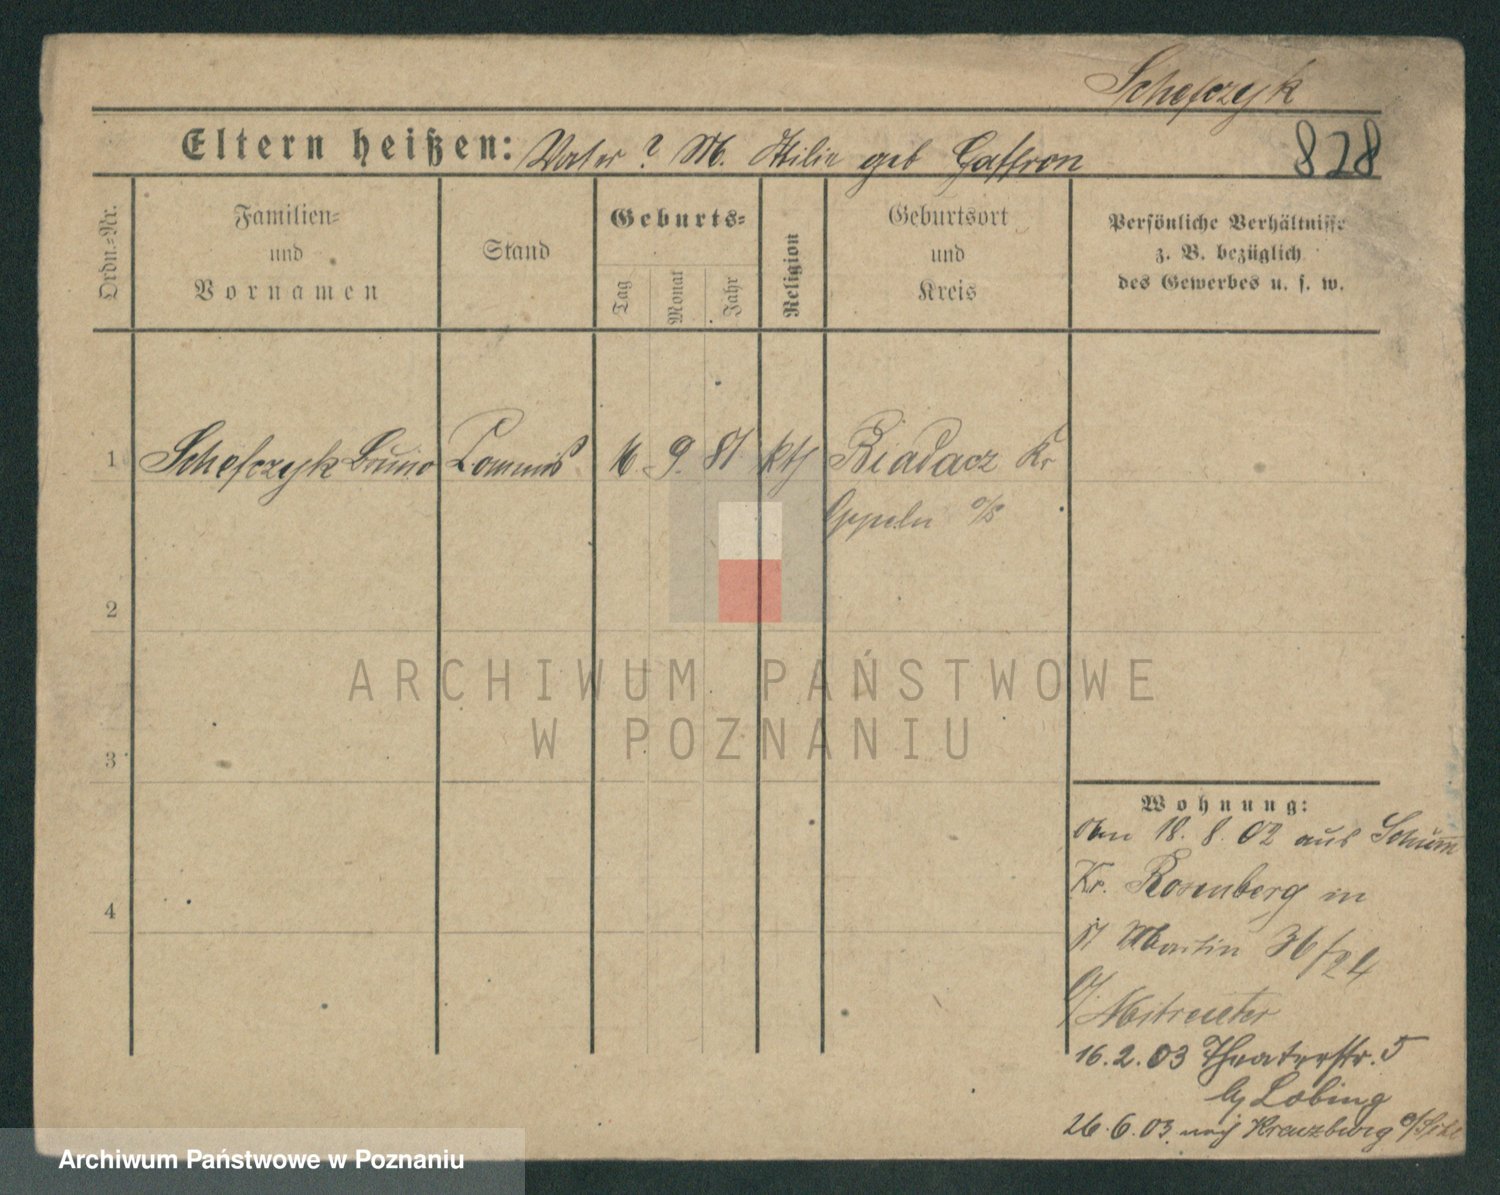 Schefczyk
Eltern heißen: Vater ? M. geb Gaffron
828
Ordn.-Nr.
Familien-
und
Vornamen
Stand
Geburts-
Tag
Monat
Jahr
Religion
Geburtsort
und
Kreis
Persönliche Verhältnisse
z. B. bezüglich
des Gewerbes u. s. w.
1 Schefczyk Bruno Commis 16. 9. 81 kth Biadacz Kr
Oppeln o/s
2
3
4
ARCHIWUM PAŃSTWOWE
W POZNANIU
Wohnung:
18. 8. 02 aus
Kr. Rosenberg in
St Martin 36/24
16. 2. 03 Theaterstr. 5
26. 6. 03. nach Kreuzburg
Archiwum Państwowe w Poznaniu